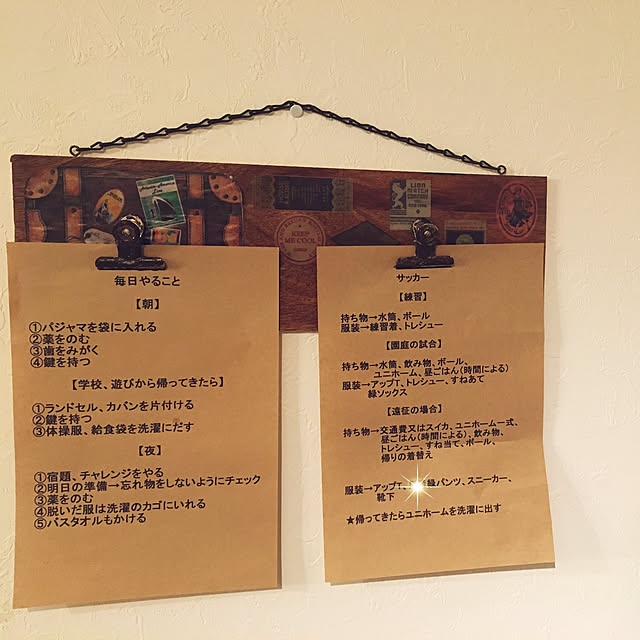 KEEP
ME COOL
LION
MATCH
COMPANY
毎日やること
【朝】
①パジャマを袋に入れる
②薬をのむ
③歯をみがく
④鍵を持つ
【学校、遊びから帰ってきたら】
①ランドセル、カバンを片付ける
②鍵を持つ
③体操服、給食袋を洗濯にだす
【夜】
①宿題、チャレンジをやる
②明日の準備→忘れ物をしないようにチェック
③薬をのむ
④脱いだ服は洗濯のカゴにいれる
⑤バスタオルもかける
サッカー
【練習】
持ち物→水筒、ボール
服装→練習着、トレシュー
【園庭の試合】
持ち物→水筒、飲み物、ボール、
ユニホーム、昼ごはん(時間による)
服装→アップT、トレシュー、すねあて
緑ソックス
【遠征の場合】
持ち物→交通費又はスイカ、ユニホーム一式、
昼ごはん(時間による)、飲み物、
トレシュー、すね当て、ボール、
帰りの着替え
服装→アップT、緑パンツ、スニーカー、
靴下
★帰ってきたらユニホームを洗濯に出す